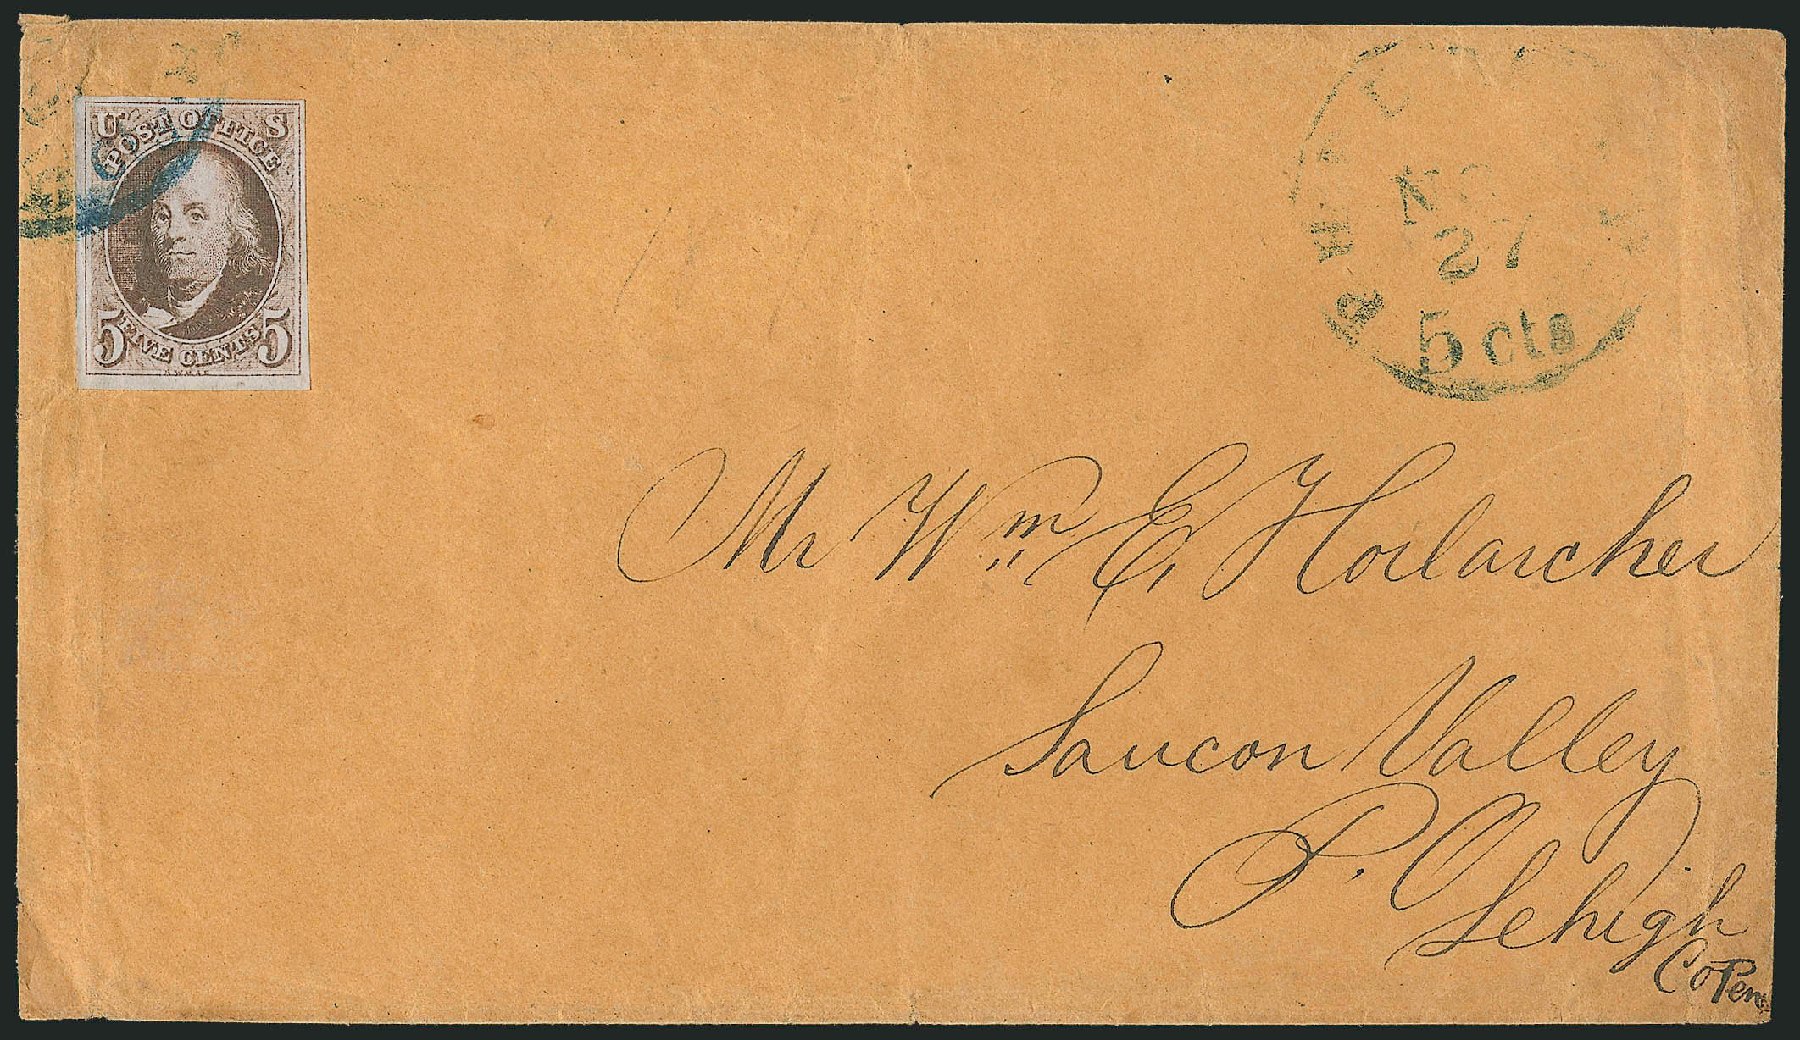 U S
POST OFFICE
5 FIVE CENTS 5
27
5 cts
Mr Wm E. Horlarcher
Saucon Valley
P. O
Lehigh
Co Pen